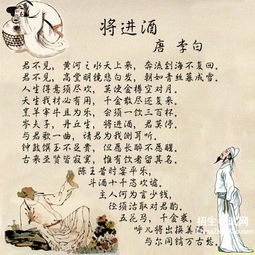 将进酒
唐 李白
君不见，黄河之水天上来，奔流到海不复回。
君不见，高堂明镜悲白发，朝如青丝暮成雪。
人生得意须尽欢，莫使金樽空对月。
天生我材必有用，千金散尽还复来。
烹羊宰牛且为乐，会须一饮三百杯。
岑夫子，丹丘生，将进酒，君莫停。
与君歌一曲，请君为我侧耳听。
钟鼓馔玉不足贵，但愿长醉不愿醒。
古来圣贤皆寂寞，惟有饮者留其名。
陈王昔时宴平乐，
斗酒十千恣欢谑。
主人何为言少钱，
径须沽取对君酌。
五花马，千金裘，
呼儿将出换美酒，
与尔同销万古愁。